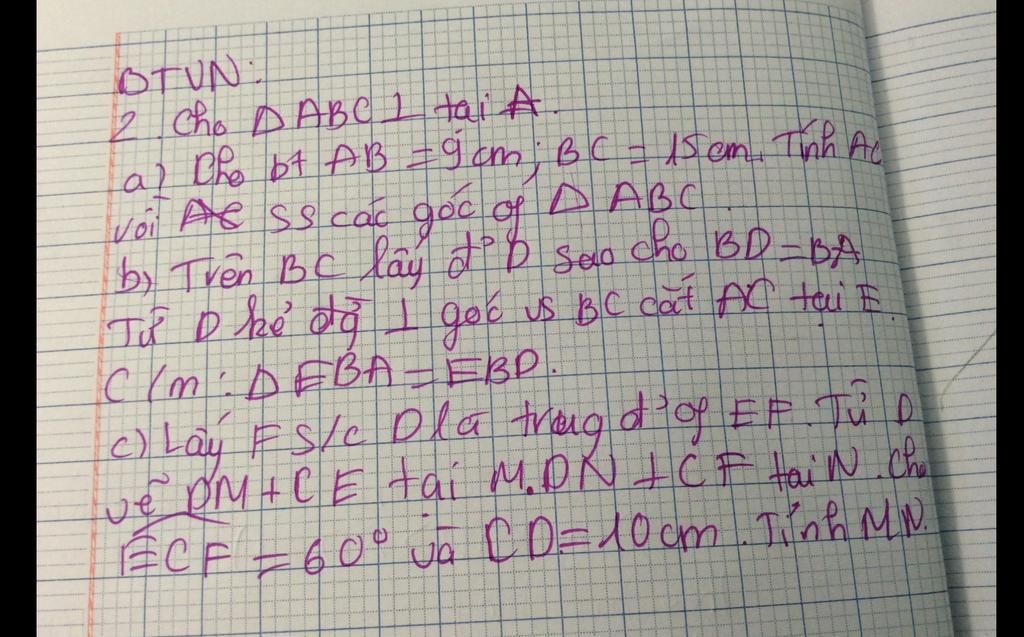 OTVN:
2. Cho Δ ABC ⊥ tại A.
a) Cho bt AB = 9 cm; BC = 15 cm. Tính AC
với SS các góc of Δ ABC.
b) Trên BC lấy đ' D sao cho BD = BA
Từ D kẻ đg ⊥ góc vs BC cắt AC tại E.
C/m: Δ EBA = EBD.
c) Lấy F S/c D là trug đ' of EF. Từ D
vẽ DM ⊥ CE tại M. DN ⊥ CF tại N. Cho
ECF = 60° và CD = 10 cm. Tính MN.